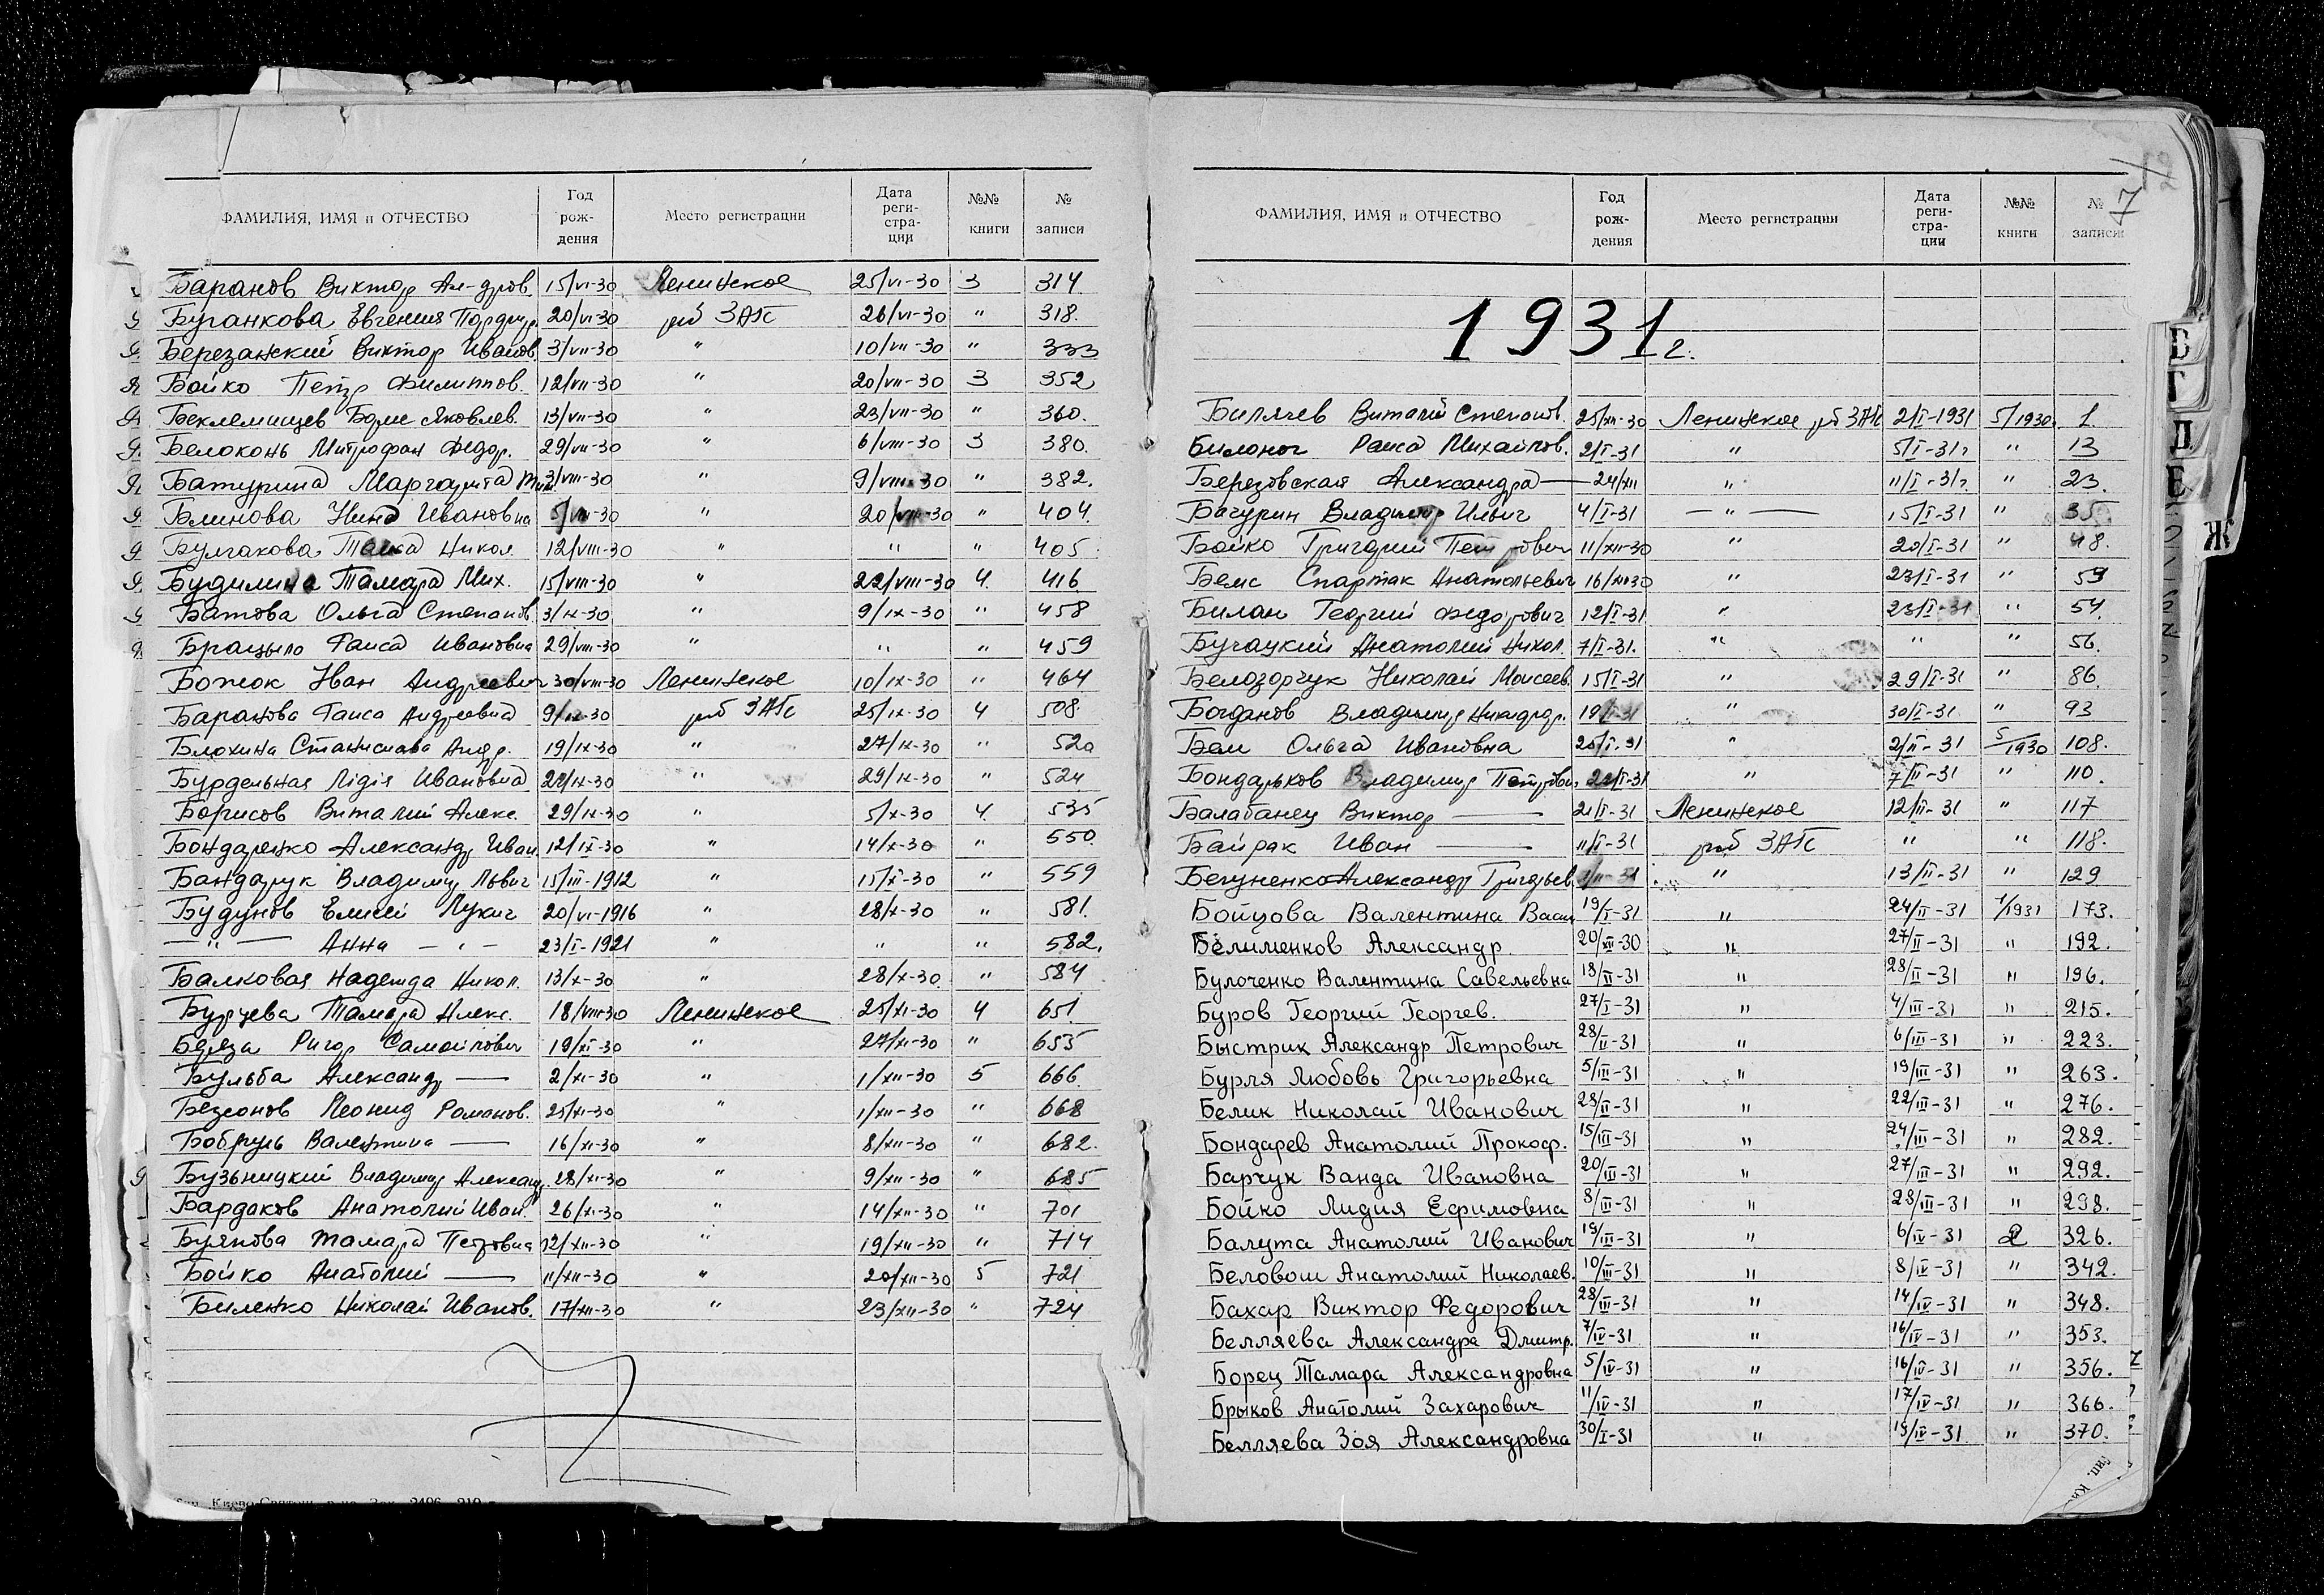 ФАМИЛИЯ, ИМЯ и ОТЧЕСТВО | Год рождения | Место регистрации | Дата регистрации | №№ книги | № записи
Баранов Виктор Ал-дров. 15/VI-30 Ленинское 25/VI-30 3 314
Буганкова Евгения 20/VI-30 раб ЗАГС 26/VI-30 " 318.
Березанский Виктор Иванов. 3/VII-30 " 10/VII-30 " 333
Бойко Петр Филиппов. 12/VII-30 " 20/VII-30 3 352
Беклемищев Борис Яковлев. 13/VII-30 " 23/VII-30 " 360.
Белоконь Митрофан Федор. 29/VII-30 " 6/VIII-30 3 380.
Батурина Маргарита 3/VIII-30 " 9/VIII-30 " 382.
Блинова Нина Ивановна 5/VIII-30 " 20/VIII-30 " 404.
Булгакова Таиса Никол. 12/VIII-30 " " " 405
Будилина Тамара Мих. 15/VIII-30 " 22/VIII-30 4 416
Батова Ольга Степанов. 3/IX-30 " 9/IX-30 " 458
Брацыло Раиса Ивановна 29/VIII-30 " " " 459
Божок Иван Андреевич 30/VIII-30 Ленинское 10/IX-30 " 464
Баранова Раиса Андреевна 9/IX-30 раб ЗАГС 25/IX-30 4 508
Блохина Станислава Андр. 19/IX-30 " 27/IX-30 " 520
Бурдельная Лідія Ивановна 22/IX-30 " 29/IX-30 " 524
Борисов Виталий Алекс. 29/IX-30 " 5/X-30 4 535
Бондаренко Александр Иван. 12/IX-30 " 14/X-30 " 550
Бандарук Владимир Львич 15/III-1912 " 15/X-30 " 559
Будунов Елисей Лукич 20/VI-1916 " 28/X-30 " 581.
— " — Анна — " — 23/I-1921 " " " 582.
Балковая Надежда Никол. 13/X-30 " 28/X-30 " 584
Бурцева Тамара Алекс. 18/VIII-30 Ленинское 25/XI-30 4 651
Береза Ригор Самойлович 19/XI-30 " 27/XI-30 " 655
Бульба Александр — 2/XI-30 " 1/XII-30 5 666
Безсонов Леонид Романов. 25/XI-30 " 1/XII-30 " 668
Бобруль Валентина — 16/XI-30 " 8/XII-30 " 682.
Бузьницкий Владимир Александр. 28/XI-30 " 9/XII-30 " 685
Бардаков Анатолий Иван. 26/XI-30 " 14/XII-30 " 701
Буянова Тамара Петровна 12/XII-30 " 19/XII-30 " 714
Бойко Анатолий — 11/XII-30 " 20/XII-30 5 721
Биленко Николай Иванов. 17/XII-30 " 23/XII-30 " 724
7
ФАМИЛИЯ, ИМЯ и ОТЧЕСТВО | Год рождения | Место регистрации | Дата регистрации | №№ книги | № записи
1931 г.
Билячев Виталий Степанов. 25/XII-30 Ленинское раб ЗАГС 2/I-1931 5/1930 1.
Билоног Раиса Михайлов. 2/I-31 " 5/I-31г " 13
Березовская Александра — 24/XII " 11/I-31г. " 23.
Бачурин Владимир Ильич 4/I-31 — " — 15/I-31 " 35
Бойко Григорий Петрович 11/XII-30 " 20/I-31 " 48.
Бемс Спартак Анатольевич 16/XII30 " 23/I-31 " 53
Билан Георгий Федорович 12/I-31 " 23/I-31 " 54.
Бучацкий Анатолий Никол. 7/I-31. " " " 56.
Белозорчук Николай Моисеев. 15/I-31 " 29/I-31 " 86
Богданов Владимир Никифор. 19/I-31 " 30/I-31 " 93
Бем Ольга Ивановна 25/I-31 " 2/II-31 5/1930 108.
Бондарьков Владимир Петрович 22/I-31 " 7/II-31 " 110.
Балабанец Виктор — 21/I-31 Ленинское 12/II-31 " 117
Байрак Иван — 11/I-31 раб ЗАГС " " 118.
Бегуненко Александр Григорьев. " 13/II-31 " 129
Бойцова Валентина Васил 19/I-31 " 24/II-31 1/1931 173.
Белименков Александр. 20/XII-30 " 27/II-31 " 192.
Булоченко Валентина Савельевна 18/II-31 " 28/II-31 " 196.
Буров Георгий Георгев. 27/I-31 " 4/III-31 " 215.
Быстрик Александр Петрович 28/II-31 " 6/III-31 " 223.
Бурля Любовь Григорьевна 5/III-31 " 19/III-31 " 263.
Белик Николай Иванович 28/II-31 " 22/III-31 " 276.
Бондарев Анатолий Прокоф. 15/III-31 " 24/III-31 " 282.
Барчук Ванда Ивановна 20/III-31 " 27/III-31 " 292.
Бойко Лидия Ефимовна 8/III-31 " 28/III-31 " 298.
Балута Анатолий Иванович 19/III-31 " 6/IV-31 2 326.
Беловош Анатолий Николаев. 10/III-31 " 8/IV-31 " 342.
Бахар Виктор Федорович 28/III-31 " 14/IV-31 " 348.
Белляева Александра Дмитр. 7/IV-31 " 16/IV-31 " 353.
Борец Тамара Александровна 5/IV-31 " 16/IV-31 " 356.
Брыков Анатолий Захарович 11/IV-31 " 17/IV-31 " 366.
Белляева Зоя Александровна 30/I-31 " 19/IV-31 " 370.
В
Г
Д
Е
Ж